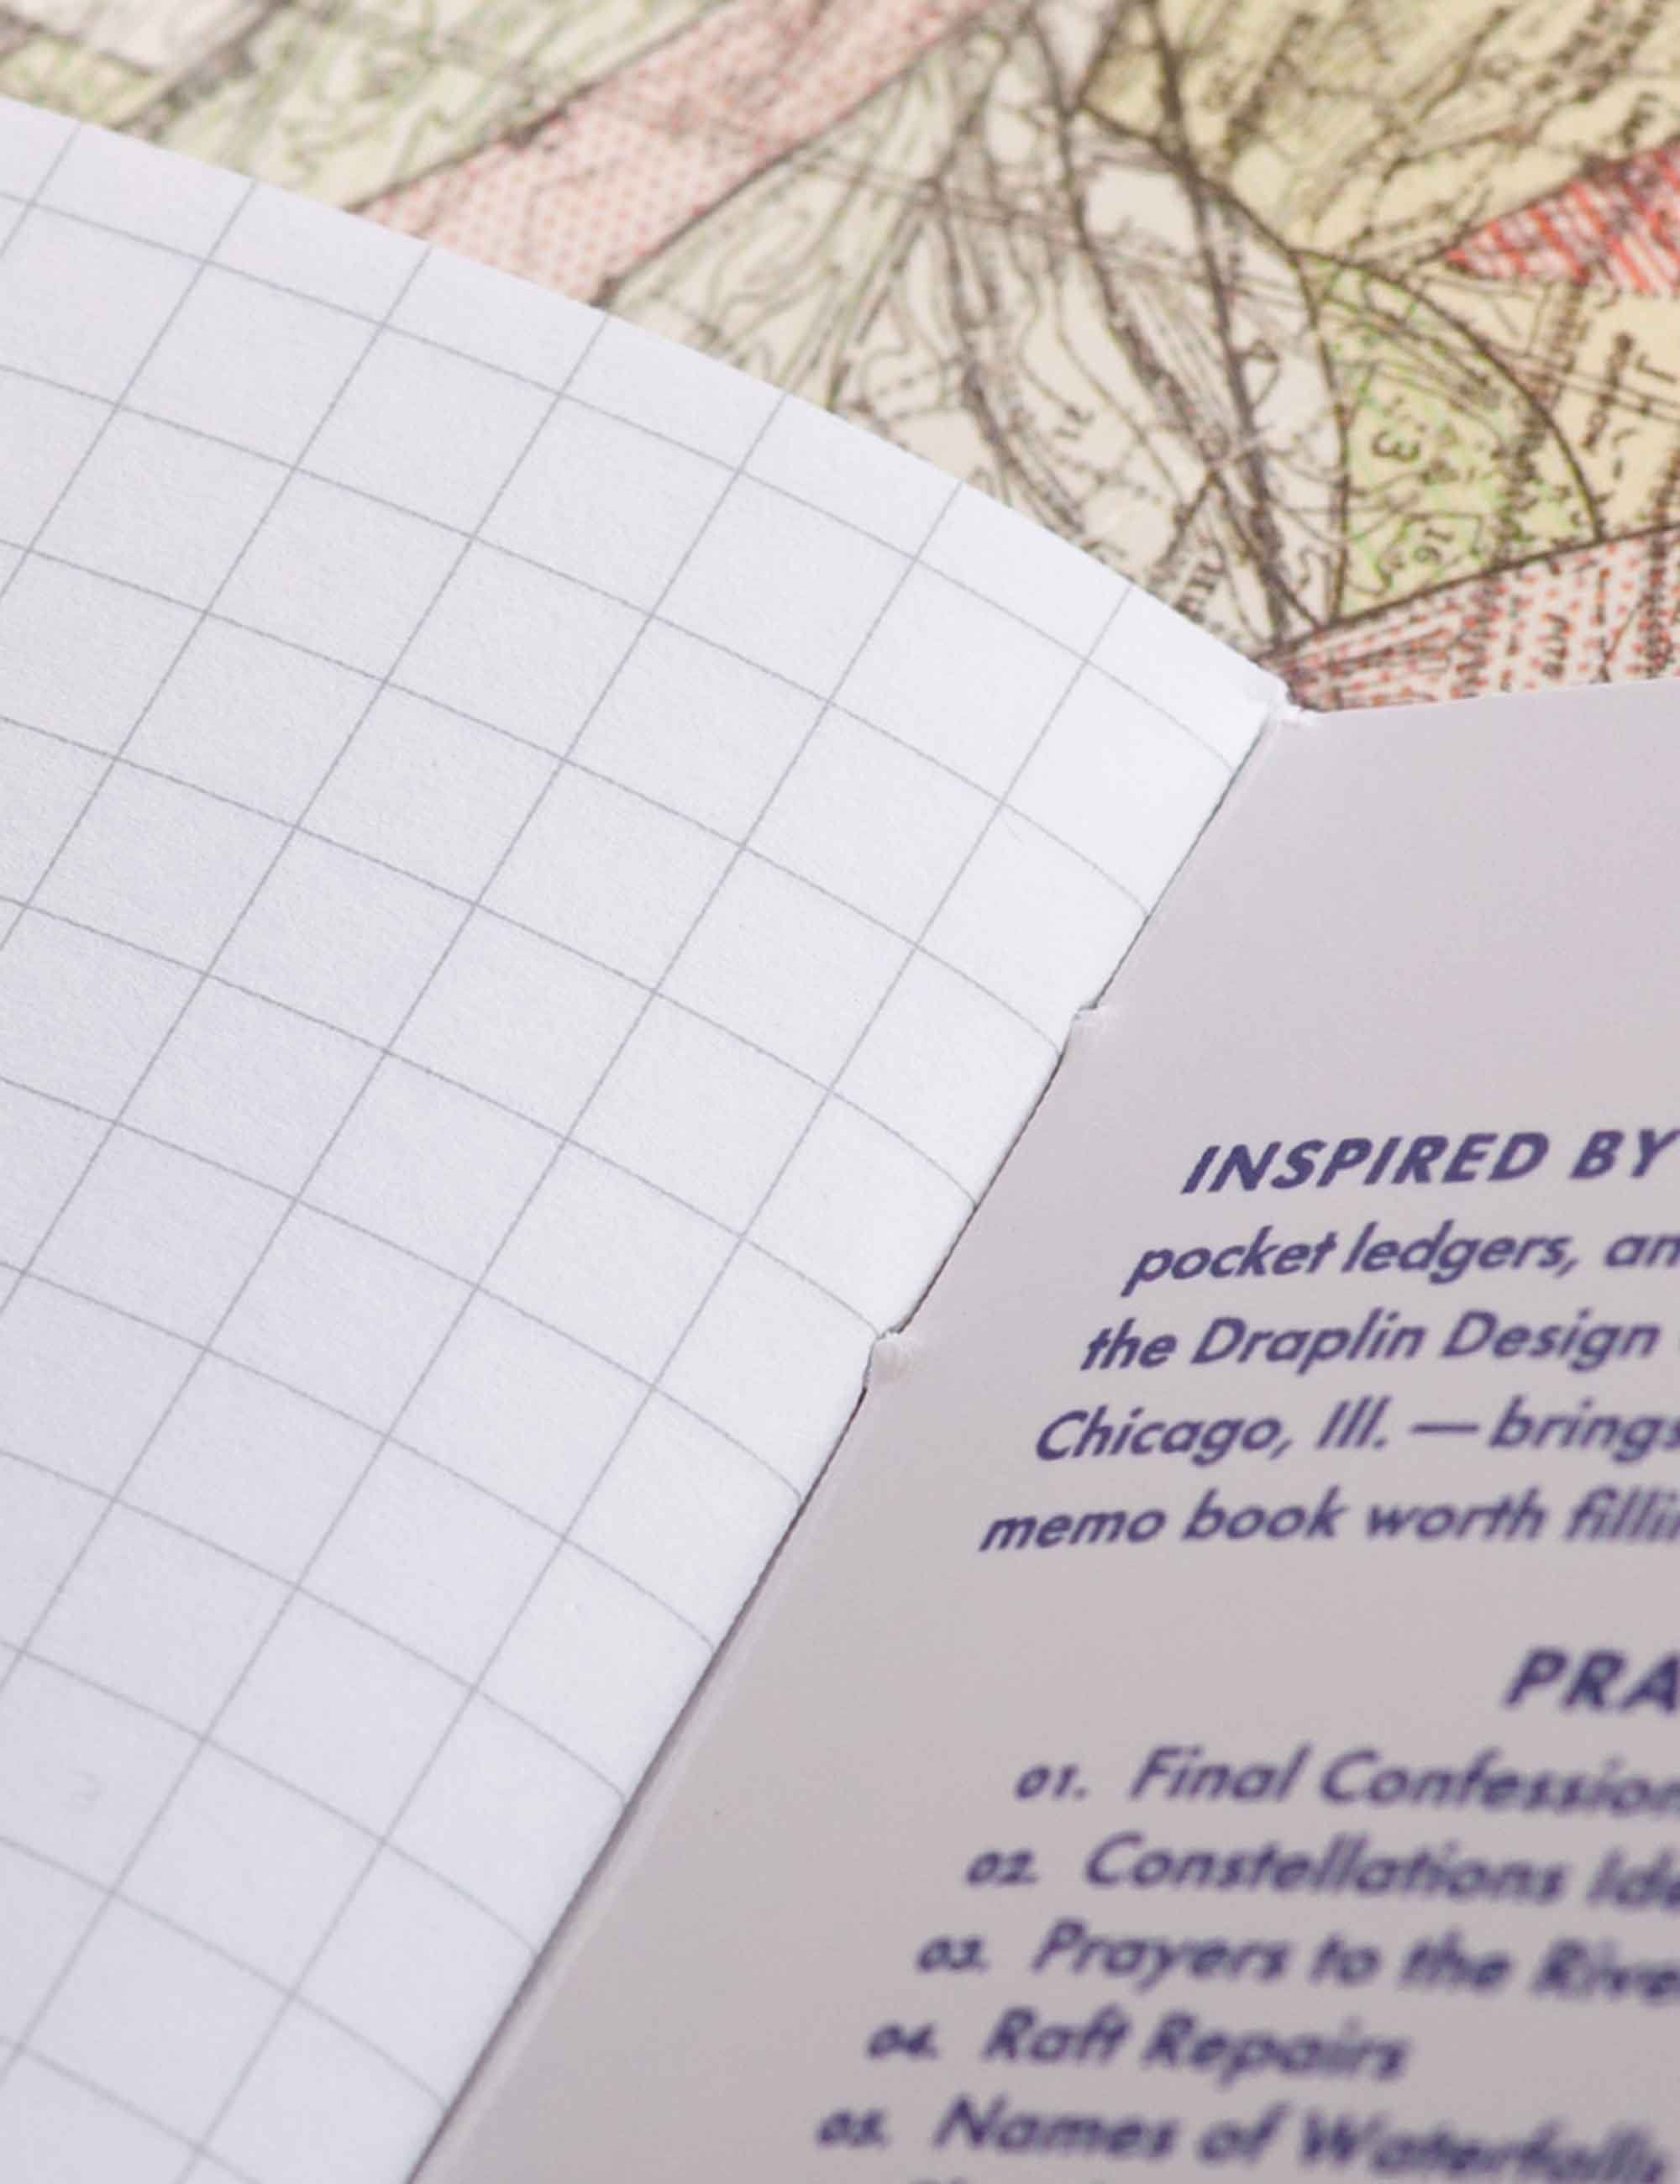 INSPIRED BY
pocket ledgers, an
the Draplin Design
Chicago, Ill. — brings
memo book worth filli
PRA
01. Final Confession
02. Constellations Ide
03. Prayers to the Rive
04. Raft Repairs
05. Names of Waterfalls